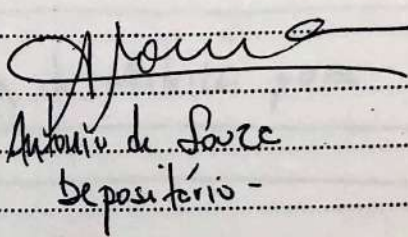 Antonio de Souza
Depositário -